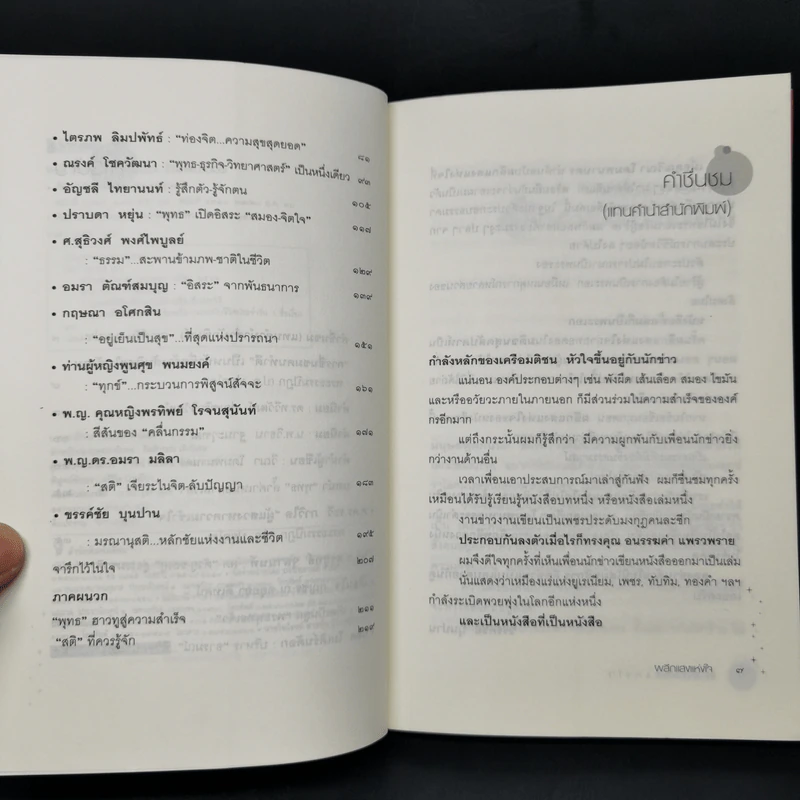 • ไตรภพ ลิมปพัทธ์ : “ท่องจิต...ความสุขสุดยอด”
๘๑
• ณรงค์ โชควัฒนา : “พุทธ-ธุรกิจ-วิทยาศาสตร์” เป็นหนึ่งเดียว
๙๓
• อัญชลี ไทยานนท์ : รู้สึกตัว-รู้จักตน
๑๐๕
• ปราบดา หยุ่น : “พุทธ” เปิดอิสระ “สมอง-จิตใจ”
๑๑๗
• ศ.สุธิวงศ์ พงศ์ไพบูลย์
: “ธรรม”...สะพานข้ามภพ-ชาติในชีวิต
๑๒๙
• อมรา ตัณฑ์สมบุญ : “อิสระ” จากพันธนาการ
๑๓๙
• กฤษณา อโศกสิน
: “อยู่เย็นเป็นสุข”...ที่สุดแห่งปรารถนา
๑๕๑
• ท่านผู้หญิงพูนศุข พนมยงค์
: “ทุกข์”...กระบวนการพิสูจน์สัจจะ
๑๖๑
• พ.ญ. คุณหญิงพรทิพย์ โรจนสุนันท์
: สีสันของ “คลื่นกรรม”
๑๗๑
• พ.ญ.ดร.อมรา มลิลา
: “สติ” เจียระไนจิต-ลับปัญญา
๑๘๓
• ขรรค์ชัย บุนปาน
: มรณานุสติ...หลักชัยแห่งงานและชีวิต
๑๙๕
จารึกไว้ในใจ
๒๐๗
ภาคผนวก
“พุทธ” ฮาวทูสู่ความสำเร็จ
๒๑๑
“สติ” ที่ควรรู้จัก
๒๑๙
คำชื่นชม
(แทนคำนำสำนักพิมพ์)
กำลังหลักของเครือมติชน หัวใจขึ้นอยู่กับนักข่าว
แน่นอน องค์ประกอบต่างๆ เช่น พังผืด เส้นเลือด สมอง ไขมัน
และหรืออวัยวะภายในภายนอก ก็มีส่วนร่วมในความสำเร็จขององค์
กรอีกมาก
แต่ถึงกระนั้นผมก็รู้สึกว่า มีความผูกพันกับเพื่อนนักข่าวยิ่ง
กว่างานด้านอื่น
เวลาเพื่อนเอาประสบการณ์มาเล่าสู่กันฟัง ผมก็ชื่นชมทุกครั้ง
เหมือนได้รับรู้เรียนรู้หนังสือบทหนึ่ง หรือหนังสือเล่มหนึ่ง
งานข่าวงานเขียนเป็นเพชรประดับมงกุฎคนละซีก
ประกอบกันลงตัวเมื่อไรก็ทรงคุณ อนรรฆค่า แพรวพราย
ผมจึงดีใจทุกครั้งที่เห็นเพื่อนนักข่าวเขียนหนังสือออกมาเป็นเล่ม
นั่นแสดงว่าเหมืองแร่แห่งยูเรเนียม, เพชร, ทับทิม, ทองคำ ฯลฯ
กำลังระเบิดพวยพุ่งในโลกอีกแห่งหนึ่ง
และเป็นหนังสือที่เป็นหนังสือ
ผลึกแสงแห่งใจ
๗